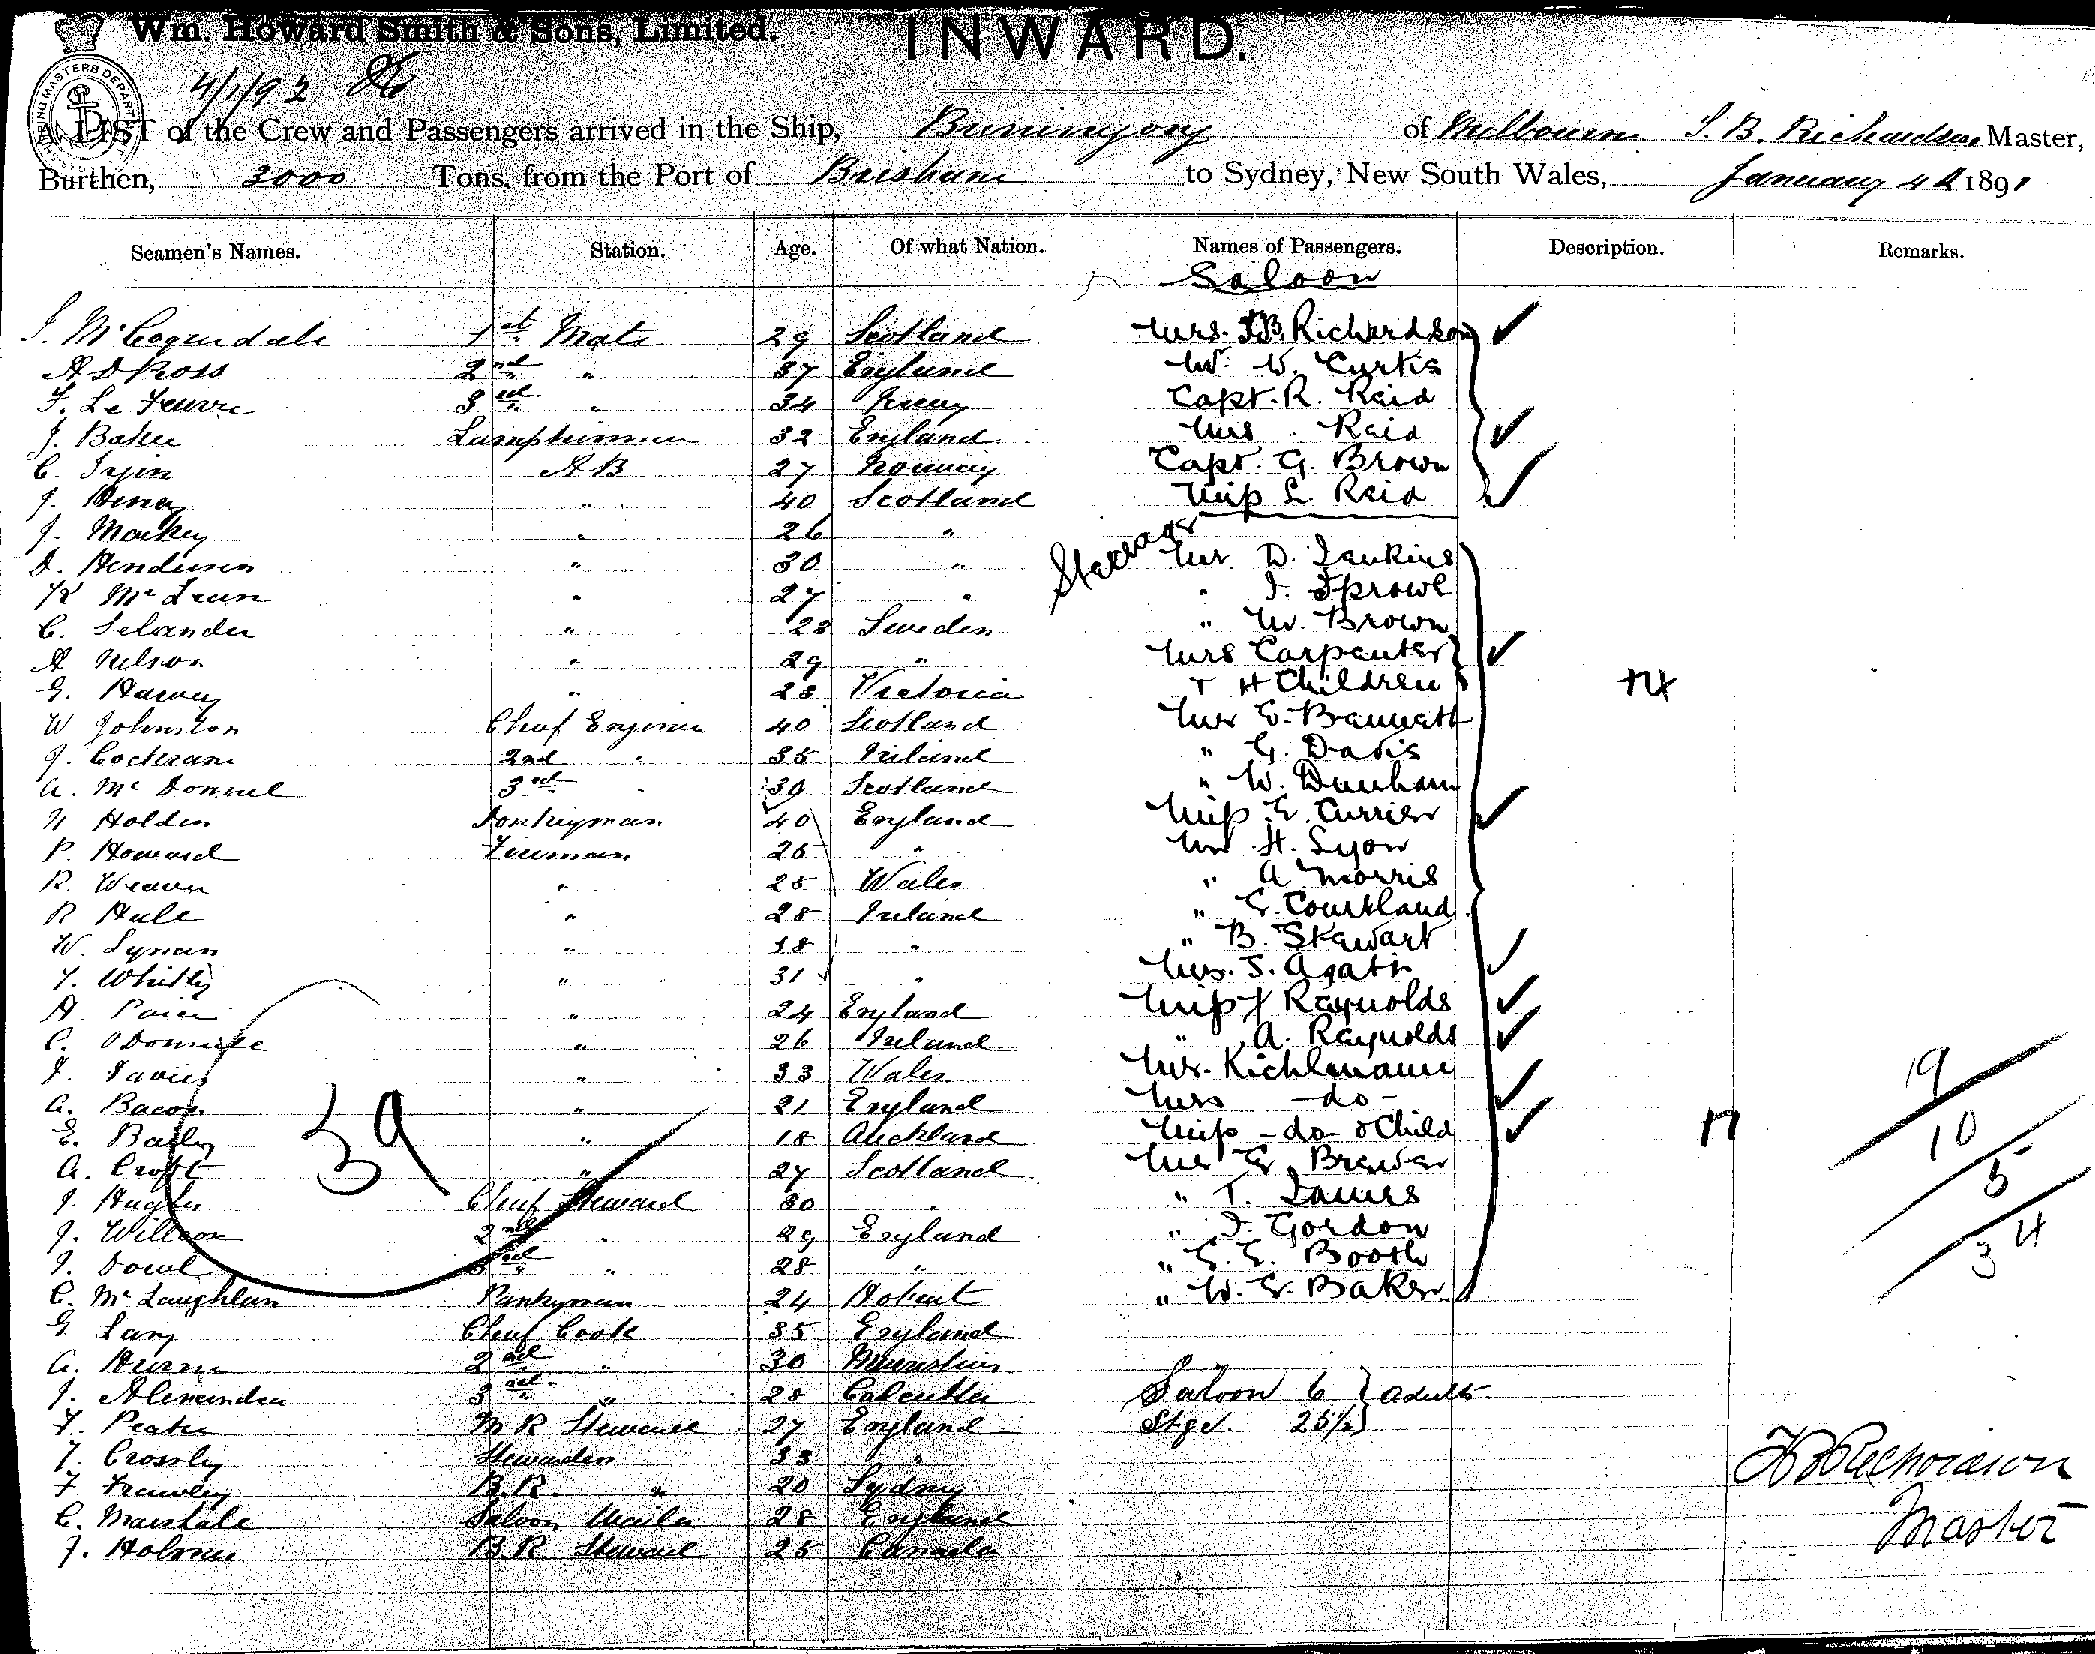 Wm. Howard Smith & Sons, Limited.
INWARD.
4/1/92
A LIST of the Crew and Passengers arrived in the Ship, Buninyong of Melbourne S. B. Richardson Master,
Burthen, 2000 Tons, from the Port of Brisbane to Sydney, New South Wales, January 4th 1891
Seamen's Names. Station. Age. Of what Nation. Names of Passengers. Description. Remarks.
Saloon
1st Mate 29 Scotland Mrs. Richardson
A D Ross 2nd " 37 England W. Curtis
F. Le Feuvre 3rd " 34 Capt. R. Reid
J. Baker Lamptrimmer 32 England Mrs. Reid
C. A B 27 Norway Capt. G. Brown
J. " 40 Scotland Miss L. Reid
J. Mackey " 26 "
Steerage
Henderson " 30 " Mr. D. Jenkins
K McLean " 27 " " Sprowl
C. Selander " 23 Sweden " W. Brown
A Nelson " 29 " Mrs Carpenter
G. Harvey " 23 Victoria + 4 Children 14
W Johnston Chief Engineer 40 Scotland Mr E. Bennett
J. Cochrane 2nd " 35 Ireland " G. Davis
A. McDonnel 3rd " 39 Scotland " W. Dunham
Holden Donkeyman 40 England Miss E. Currier
P. Howard Fireman 26 " Mr H. Lyon
R. Weaver " 25 Wales " A Morris
R Hale " 28 Ireland " E. Courtland
W. Lynan " 18 " " B. Stewart
T. Whitty " 31 " Agati
" 24 England Miss Reynolds
C. " 26 Ireland " A. Reynolds
Davies " 33 Wales Mr. Kichlmann
A. Bacon " 21 England Mrs -do-
E. Bailey " 18 Auckland Miss -do- & Child 17
A. Croft " 27 Scotland Mr E. Brewer
J. Hughes Chief Steward 30 " " T. James
J. Willson 2nd " 29 England " J. Gordon
J. 3rd " 28 " " E. E. Booth
C. McLaughlan Pantryman 24 Hobart " W. E. Baker
G Lang Chief Cook 35 England
A. 2nd " 30 Mauritius
J. Alexander 3rd " 28 Calcutta Saloon 6 } adults
M R Steward 27 England Stge. 25½ }
T. Crossley Stewardess 33 "
F Frawley B.R. " 20 Sydney
C. Marshall Saloon Waiter 28 England
J. Holmes B R Steward 25 Canada
39
19
10
5
34
Richardson
Master